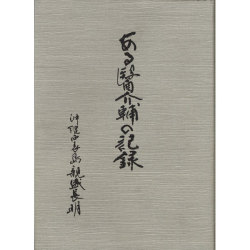 ある醫介輔の記録
沖縄西表島親盛長明